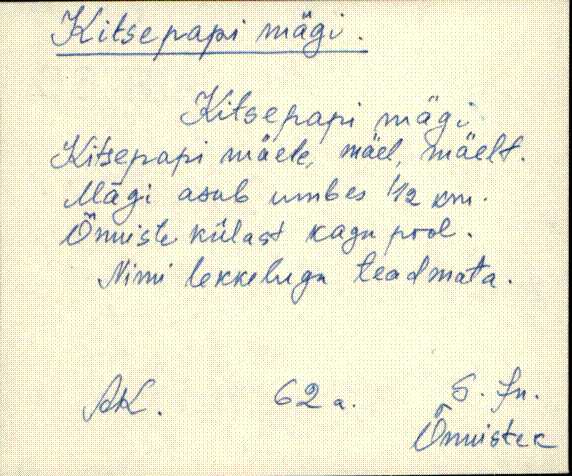 Kitsepapi mägi.
Kitsepapi mägi
Kitsepapi mäele, mäel, mäelt.
Mägi asub umbes 1/2 km.
Õnniste külast kagu pool.
Nimi tekkelugu teadmata.
AK. 62 a. S. Jn.